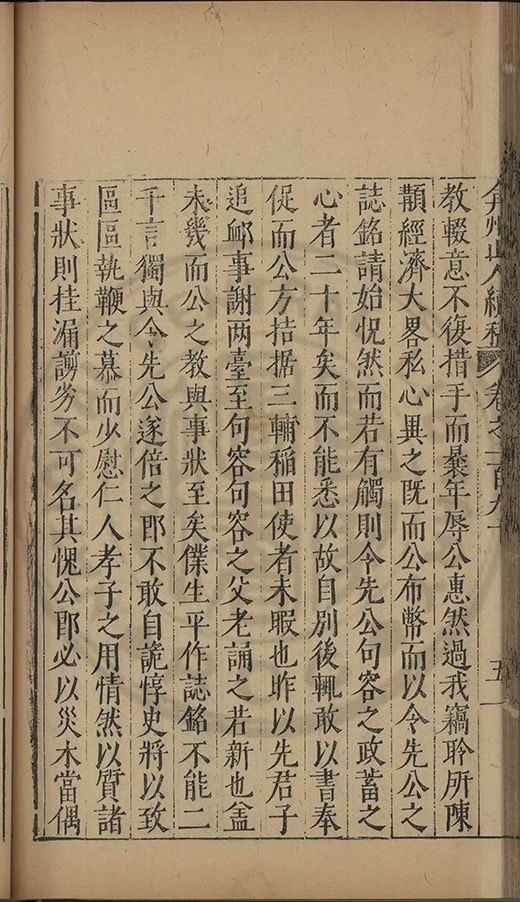 弇州山人續稿 卷之一百九十 五
教輟意不復措手而曩年辱公惠然過我竊聆所陳
顜經濟大畧私心異之既而公布幣而以令先公之
誌銘請始怳然而若有觸則令先公句容之政蓄之
心者二十年矣而不能悉以故自別後輒敢以書奉
促而公方拮据三輔稻田使者未暇也昨以先君子
追䘏事謝两臺至句容句容之父老誦之若新也盖
未幾而公之教與事狀至矣僕生平作誌銘不能二
千言獨與令先公遂倍之即不敢自詭惇史將以致
區區執鞭之慕而少慰仁人孝子之用情然以質諸
事狀則挂漏謭劣不可名其愧公即必以災木當偶